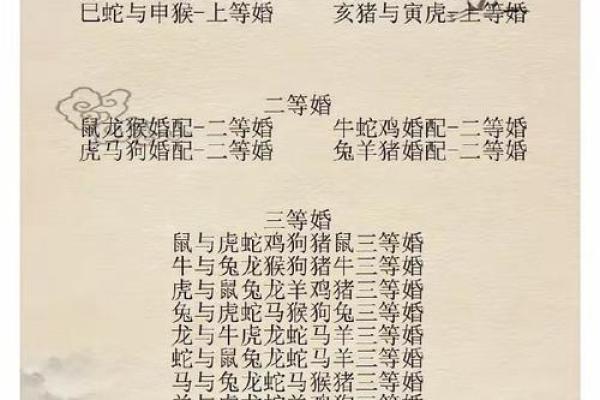 巳蛇与申猴-上等婚 亥猪与寅虎-上等婚
二等婚
鼠龙猴婚配-二等婚 牛蛇鸡婚配-二等婚
虎马狗婚配-二等婚 兔羊猪婚配-二等婚
三等婚
鼠与虎蛇鸡狗猪鼠三等婚
牛与兔龙猴狗猪牛三等婚
虎与鼠兔龙羊鸡猪三等婚
兔与虎蛇马猴狗兔三等婚
龙与牛虎龙蛇马羊三等婚
蛇与鼠兔龙蛇马羊三等婚
马与兔龙蛇马猴猪三等婚
羊与虎龙蛇